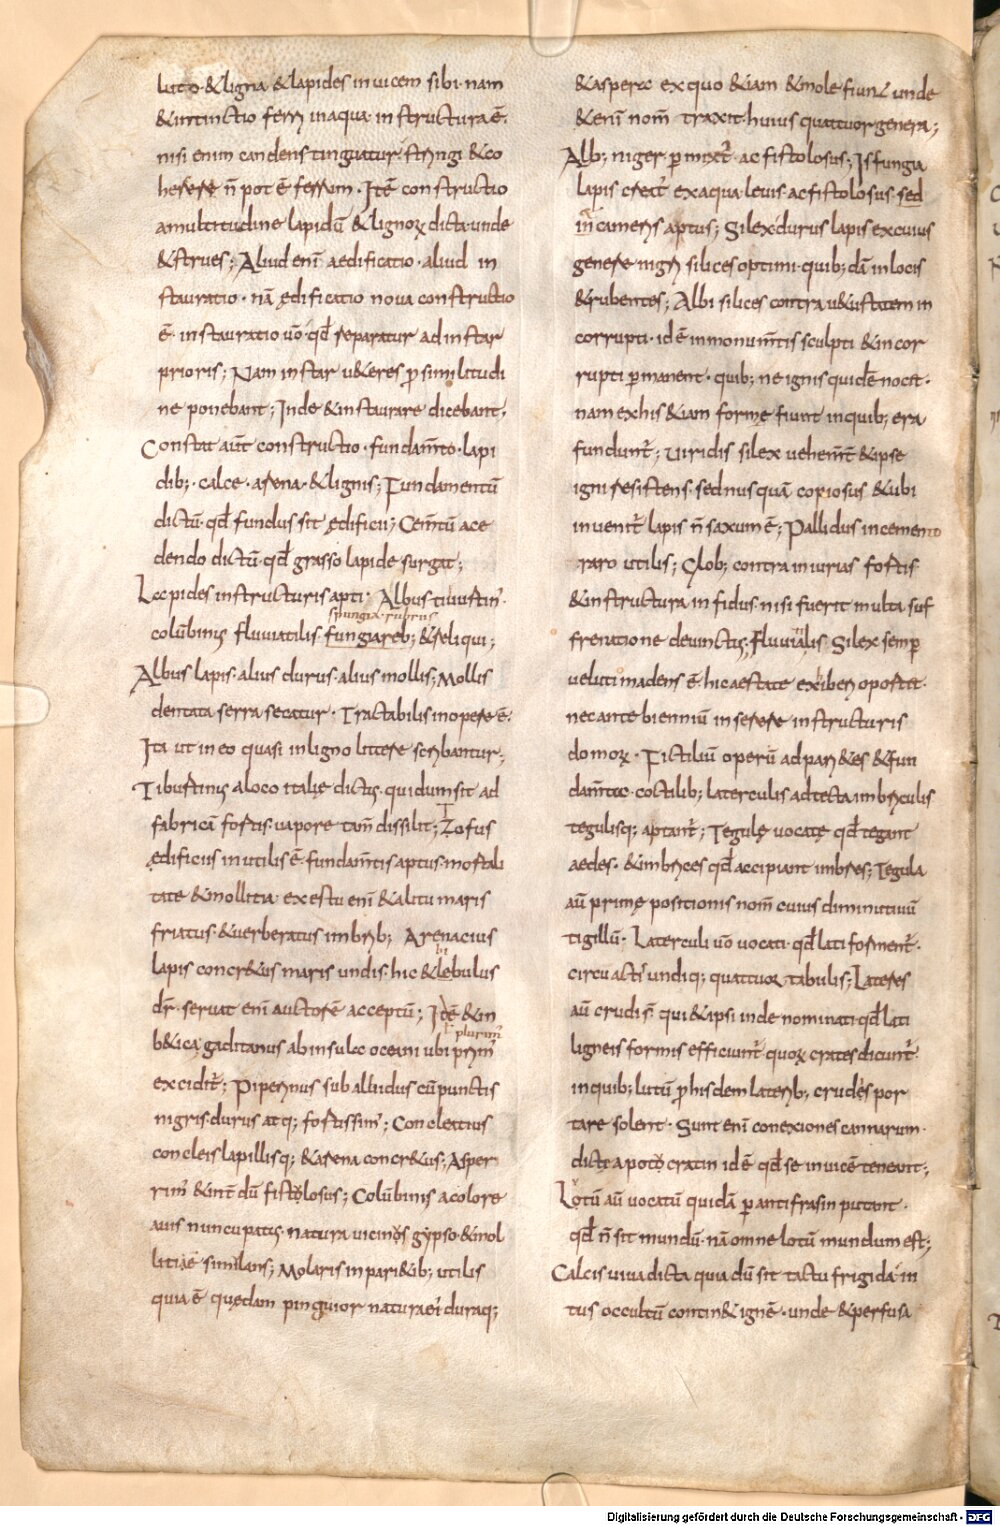 luto & ligna & lapides inuicem sibi· nam
& intinctio ferri in aqua· in structura ē·
nisi enim candens tinguatur stringi & co
herere ñ pot ē ferrum· Itē constructio
a multitudine lapidū & lignoꝝ dicta· unde
& strues; Aliud enī aedificatio· aliud in
stauratio· nā ędificatio noua constructio
ē· instauratio uō qđ reparatur ad instar
prioris; Nam instar u&eres ꝓ similitudi
ne ponebant; Inde & instaurare dicebant·
Constat aūt constructio· fundam̄to· lapi
dib;· calce· arena· & lignis; Fundamentū
dictū· qđ fundus sit ędificii; Cem̄tū a ce
dendo dictū· qđ grasso lapide surgat;
Lapides in structuris apti· Albus tiuustin᾿
spungia· rubrus
colūbinus fluuiatilis fungiareb; & reliqui;
Albus lapis· alius durus· alius mollis; Mollis
dentata serra secatur· Tractabilis in opere ē·
Ita ut in eo quasi in ligno littere scribantur;
Tiburtinus a loco italię dictus· qui dum sit ad
fabricā fortis· uapore tam̄ dissilit; Zofus
ędificiis inutilis ē· fundam̄tis aptus· mortali
tate & mollitia· ex estu enī & alitu maris
friatus· & uerberatus imbrib; Arenacius
lapis concr&us maris undis· hic & lebulus
dr̄· seruat enī auctorē acceptū; Itē & in
plurim᾿
b&ica gaditanus ab insula oceani ubi prim᾿
excidit᾿; Piperinus subalbidus cū punctis
nigris· durus atq; fortissim᾿; Concleatius
concleis lapillisq; & arena concr&us; Asper
rim᾿ & int̄dū fistolosus; Colūbinus a colore
auis nuncupatus· natura uicinos gypso & mol
litiae similans; Molaris in pari&ib; utilis
quia ē quędam pinguior natura ei duraq;
& aspera ex quo &iam & mole fiunt unde
& enī nom̄ traxit· huius quattuor genera;
Alb; niger p mixt᾿ ac fistolosus; Is fungia
lapis creat᾿ ex aqua leuis ac fistolosus sed
in cameris aptus; Silex durus lapis ex cuius
genere nigri silices optimi· quib;dā in locis
& rubentes; Albi silices contra u&ustatem in
corrupti· id ē in monum̄tis sculpti & incor
rupti p manent· quib; ne ignis quidē nocit·
nam ex his &iam formę fiunt in quib; era
fundunt᾿; Uiridis silex uehem̄t & ipse
igni resistens· sed nusquā copiosus & ubi
inuenit᾿ lapis ñ saxum ē; Pallidus in cemento
raro utilis; Glob; contra iniurias fortis
& in structura infidus nisi fuerit multa suf
frenatione deuinctus; Fluuialis Silex semp
ueluti madens ē· hic aestate exiberi oportit·
nec ante bienniū inserere in structuris
domoꝝ· Fictiliū operū ad pari&es & fun
dam̄ta· coctilib; laterculis ad tecta imbriculis
tegulisq; aptant᾿; Tegulę uocatę qđ tegant
aedes· & imbrices qđ accipiant imbres; Tegula
aū primę positionis nom̄ cuius diminutiuū
tigillū· Laterculi uō uocati· qđ lati forment᾿·
circu acti undiq; quattuor tabulis; Lateres
aū crudi s̄· qui & ipsi inde nominati· qđ lati
ligneis formis efficiunt᾿ quoꝝ crates dicunt᾿
in quib; lutū ꝓ hisdem laterib; crudes por
tare solent· Sunt enī conexiones cannarum·
dictę apoto cratin id ē qđ se inuicē teneant;
Lotū aū uocatū quidā p antifrasin putant·
qđ ñ sit mundū· nā omne lotū mundum est;
Calcis uiua dicta quia dū sit tactu frigida in
tus occultū contin& ignē· unde & perfusa
Digitalisierung gefördert durch die Deutsche Forschungsgemeinschaft - DFG